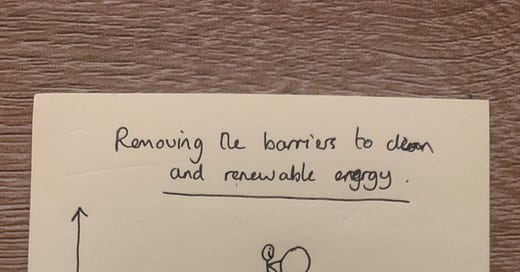 Removing the barriers to clean
and renewable energy.